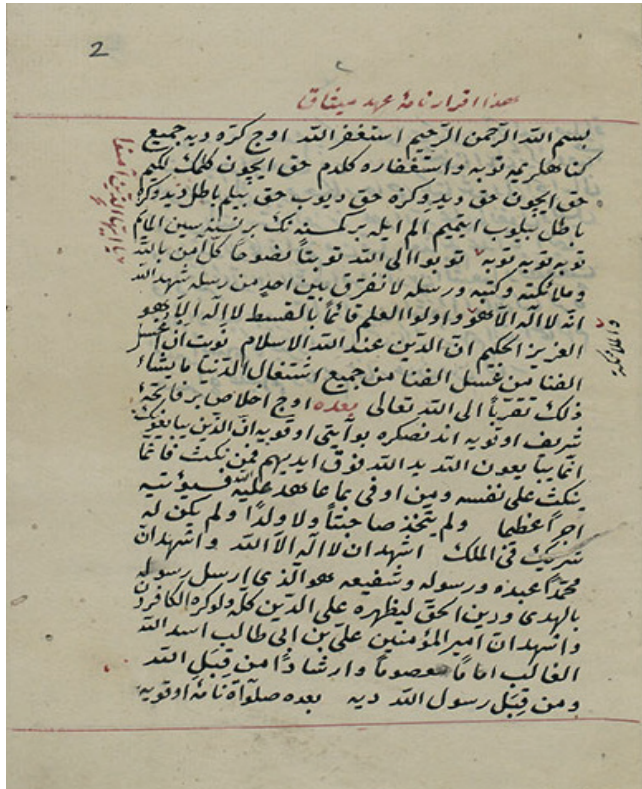 2
هذا اقرار نامهٔ عهد ميثاق
بسم الله الرّحمن الرّحيم استغفر الله اوج كرّه ديه جميع
كناهلريمه توبه و استغفاره كلدم حق ايچون كلمك لكيم
حق ايچون حق ديدوكزه حق ديوب حق بيلم باطل ديدوكزه
باطل بيلوب ايتميم الم ايله بر كمسنه نك بر نسنه سين المايم
توبه توبه توبه توبوا الى الله توبتاً نصوحاً كل آمن بالله
و ملائكته و كتبه و رسله لا نفرّق بين احد من رسله شهد الله
انّه لا اله الّا هو و اولوا العلم قائماً بالقسط لا اله الّا هو
والملائكة
العزيز الحكيم انّ الدّين عند الله الاسلام نويت ان اغسل
الفنا من غسل الفنا من جميع اشتغال الدّنيا ما يشاء
ذلك تقرّباً الى الله تعالى بعده اوج اخلاص بر فاتحهٔ
شريف اوقويه اندنصكره بو آيتى اوقويه انّ الّذين يبايعونك
انّما يبايعون الله يد الله فوق ايديهم فمن نكث فانّما
ينكث على نفسه و من اوفى بما عاهد عليه الله فسيؤتيه
اجراً عظيما و لم يتّخذ صاحبتاً و لا ولداً و لم يكن له
شريك فى الملك اشهد ان لا اله الّا الله و اشهد انّ
محمّداً عبده و رسوله و شفيعه هو الّذى ارسل رسوله
بالهدى و دين الحقّ ليظهره على الدّين كلّه و لو كره الكافرون
و اشهد انّ امير المؤمنين علىّ بن ابى طالب اسد الله
الغالب اماماً معصوماً و ارشاداً من قِبَلِ الله
و من قِبَل رسول الله ديه بعده صلوآة نامهٔ اوقويه